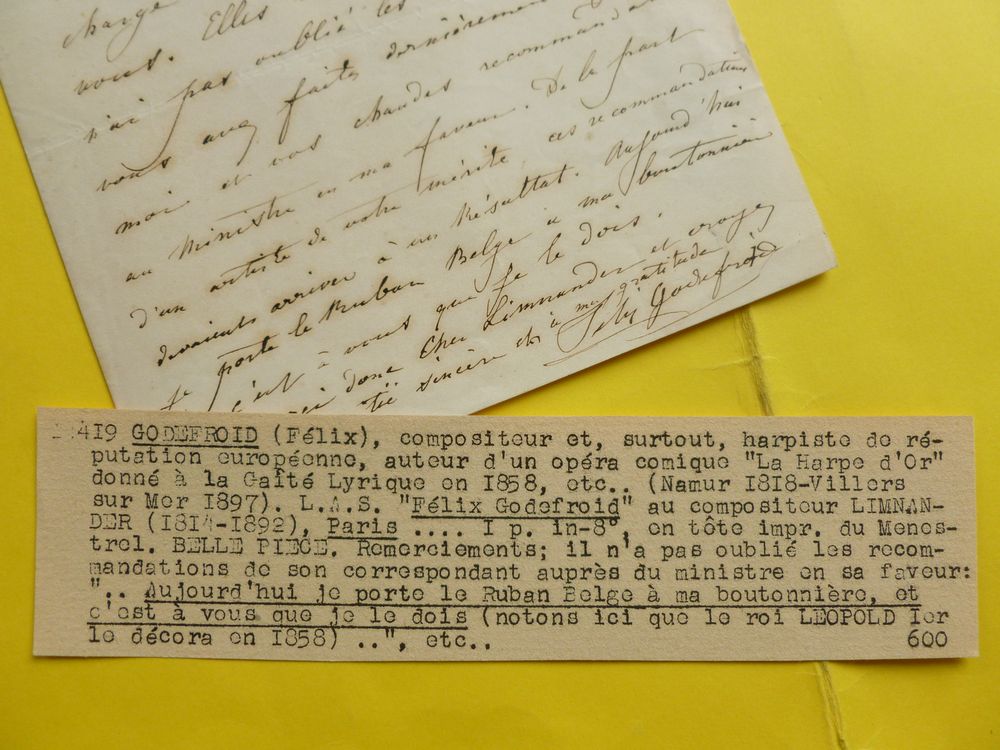 charge
vous. Elles
n'ai pas oublié les
vous avez faites dernièrement
moi et vos chaudes recommandat
au Ministre en ma faveur. De la part
d'un artiste de votre mérite ces recommandations
devaient arriver à un Résultat. Aujourd'hui
je porte le Ruban Belge à ma boutonnière
c'est à vous que je le dois.
donc cher Limnander et croyez
sincère et à ma gratitude
Félix Godefroid
419 GODEFROID (Félix), compositeur et, surtout, harpiste de ré-
putation européenne, auteur d'un opéra comique "La Harpe d'Or"
donné à la Gaîté Lyrique en I858, etc.. (Namur I8I8-Villers
sur Mer I897). L.A.S. "Félix Godefroid" au compositeur LIMNAN-
DER (I8I4-I892), Paris .... I p. in-8°, en tête impr. du Menes-
trel. BELLE PIECE. Remerciements; il n'a pas oublié les recom-
mandations de son correspondant auprès du ministre en sa faveur:
".. Aujourd'hui je porte le Ruban Belge à ma boutonnière, et
c'est à vous que je le dois (notons ici que le roi LEOPOLD Ier
le décora en I858) ..", etc..
600